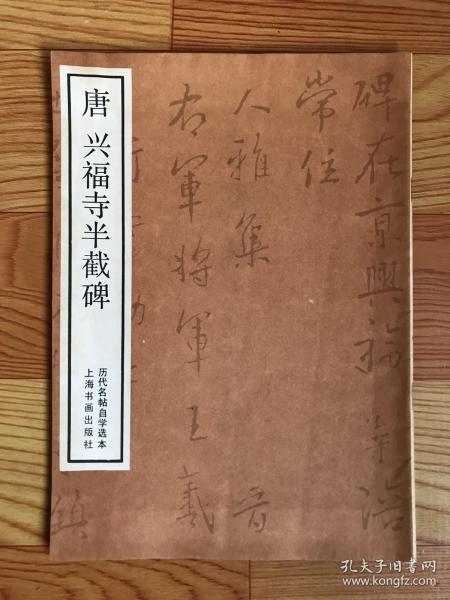 唐 兴福寺半截碑
历代名帖自学选本
上海书画出版社
碑在京興福寺
常住
人雅集
右軍將軍王羲
晋
鎮
孔夫子旧书网
www.kongfz.com